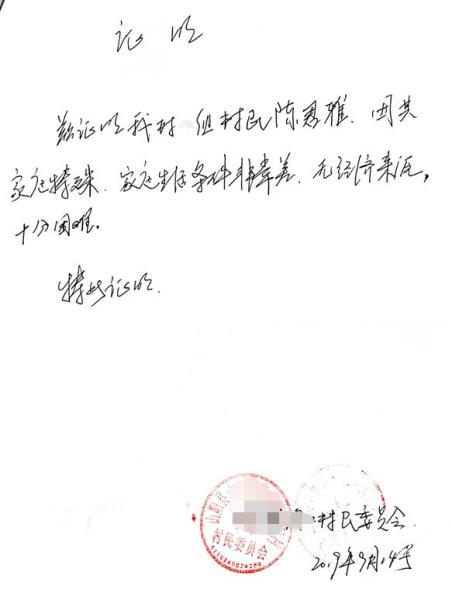 证明
兹证明我村 组村民陈思雅、因其
家庭特殊、家庭生活条件非常差、无经济来源，
十分困难.
特此证明.
村民委员会
村民委员会.
2019年9月14号